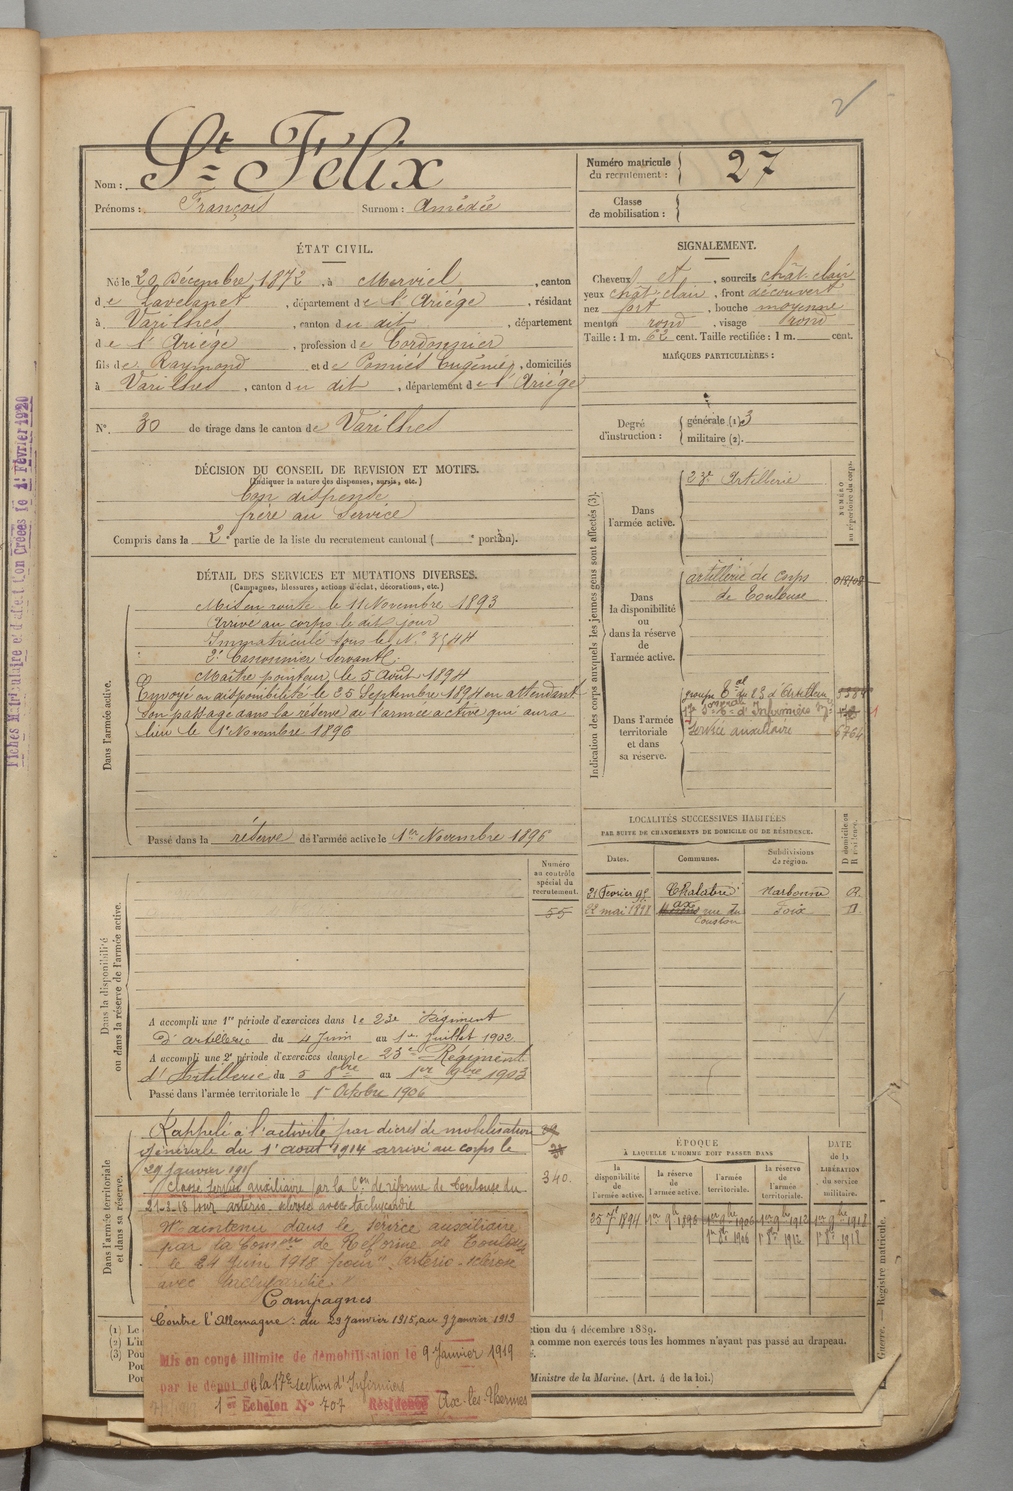 Fiches Matriculaire et d'effectif Non Créées le 1r Février 1920
Nom : St Félix
Prénoms : François Surnom : Amédée
Numéro matricule du recrutement : 27
Classe de mobilisation :
ÉTAT CIVIL.
Né le 20 Décembre 1872, à Merviel, canton
de Lavelanet, département de l'Ariège, résidant
à Varilhes, canton du dit, département
de l'Ariège, profession de Cordonnier
fils de Raymond et de Eugénie, domiciliés
à Varilhes, canton du dit, département de l'Ariège
N° 30 de tirage dans le canton de Varilhes
SIGNALEMENT.
Cheveux et, sourcils chât. clair
yeux chât clair, front découvert
nez fort, bouche moyenne
menton rond, visage rond
Taille : 1 m. 62 cent. Taille rectifiée : 1 m. cent.
MARQUES PARTICULIÈRES :
Degré d'instruction : générale (1) 3
militaire (2).
DÉCISION DU CONSEIL DE REVISION ET MOTIFS.
(Indiquer la nature des dispenses, sursis, etc.)
Bon dispensé
frère au service
Compris dans la 2e partie de la liste du recrutement cantonal ( e portion).
DÉTAIL DES SERVICES ET MUTATIONS DIVERSES.
(Campagnes, blessures, actions d'éclat, décorations, etc.)
Dans l'armée active.
Mis en route le 11 Novembre 1893
Arrivé au corps le dit jour
Immatriculé sous le N° 3544
2e Canonnier Servant
Maître pointeur le 5 Août 1894
Envoyé en disponibilité le 25 Septembre 1894 en attendant
son passage dans la réserve de l'armée active qui aura
lieu le 1r Novembre 1896
Passé dans la réserve de l'armée active le 1er Novembre 1896
Indication des corps auxquels les jeunes gens sont affectés (3).
NUMÉRO au répertoire du corps.
Dans l'armée active.
23e Artillerie
Dans la disponibilité ou dans la réserve de l'armée active.
artillerie de corps
de Toulouse
Dans l'armée territoriale et dans sa réserve.
groupe tal du 23 d'Artillerie
17e Son d'Infirmiers
Service auxiliaire 6764
LOCALITÉS SUCCESSIVES HABITÉES
PAR SUITE DE CHANGEMENTS DE DOMICILE OU DE RÉSIDENCE.
D domicile ou R résidence.
Dates. Communes. Subdivisions de région.
21 Fevrier 98 Chalabre Narbonne R.
22 mai 1898 ax rue du Coustou Foix D.
Numéro au contrôle spécial du recrutement.
55
Dans la disponibilité ou dans la réserve de l'armée active.
A accompli une 1re période d'exercices dans le 23e Régiment
d'artillerie du 4 Juin au 1er Juillet 1902
A accompli une 2e période d'exercices dans le 23e Régiment
d'Artillerie du 5 8bre au 1er 9bre 1903
Passé dans l'armée territoriale le 1er Octobre 1906
Dans l'armée territoriale et dans sa réserve.
Rappelé à l'activité par décret de mobilisation
générale du 1er août 1914 arrivé au corps le
29 Janvier 1915
340.
Classé service auxiliaire par la Con de réforme de Toulouse du
21-3-18 pour artério-sclérose avec tachycardie
Maintenu dans le service auxiliaire
par la Comson de Réforme de Toulouse
le 24 Juin 1918 pour artério-sclérose
avec tachycardie
Campagnes
Contre l'Allemagne : du 29 Janvier 1915, au 9 Janvier 1919
Mis en congé illimité de démobilisation le 9 Janvier 1919
par le dépôt de la 17e section d'Infirmiers
1er Echelon N° 707 Résidence Ax-les-Thermes
ÉPOQUE
À LAQUELLE L'HOMME DOIT PASSER DANS
la disponibilité de l'armée active. la réserve de l'armée active. l'armée territoriale. la réserve de l'armée territoriale.
DATE de la LIBÉRATION du service militaire.
25 7e 1894 1er 9b 1896 1er 9b 1906 1er 9b 1912 1er 9b 1918
1er 8b 1906 1er 8b 1912 1er 8b 1918
(1) Le
(2) L'in
(3) Pou
Pou
Pou
ction du 4 décembre 1889.
a comme non exercés tous les hommes n'ayant pas passé au drapeau.
Ministre de la Marine. (Art. 4 de la loi.)
Guerre. — Registre matricule. 1